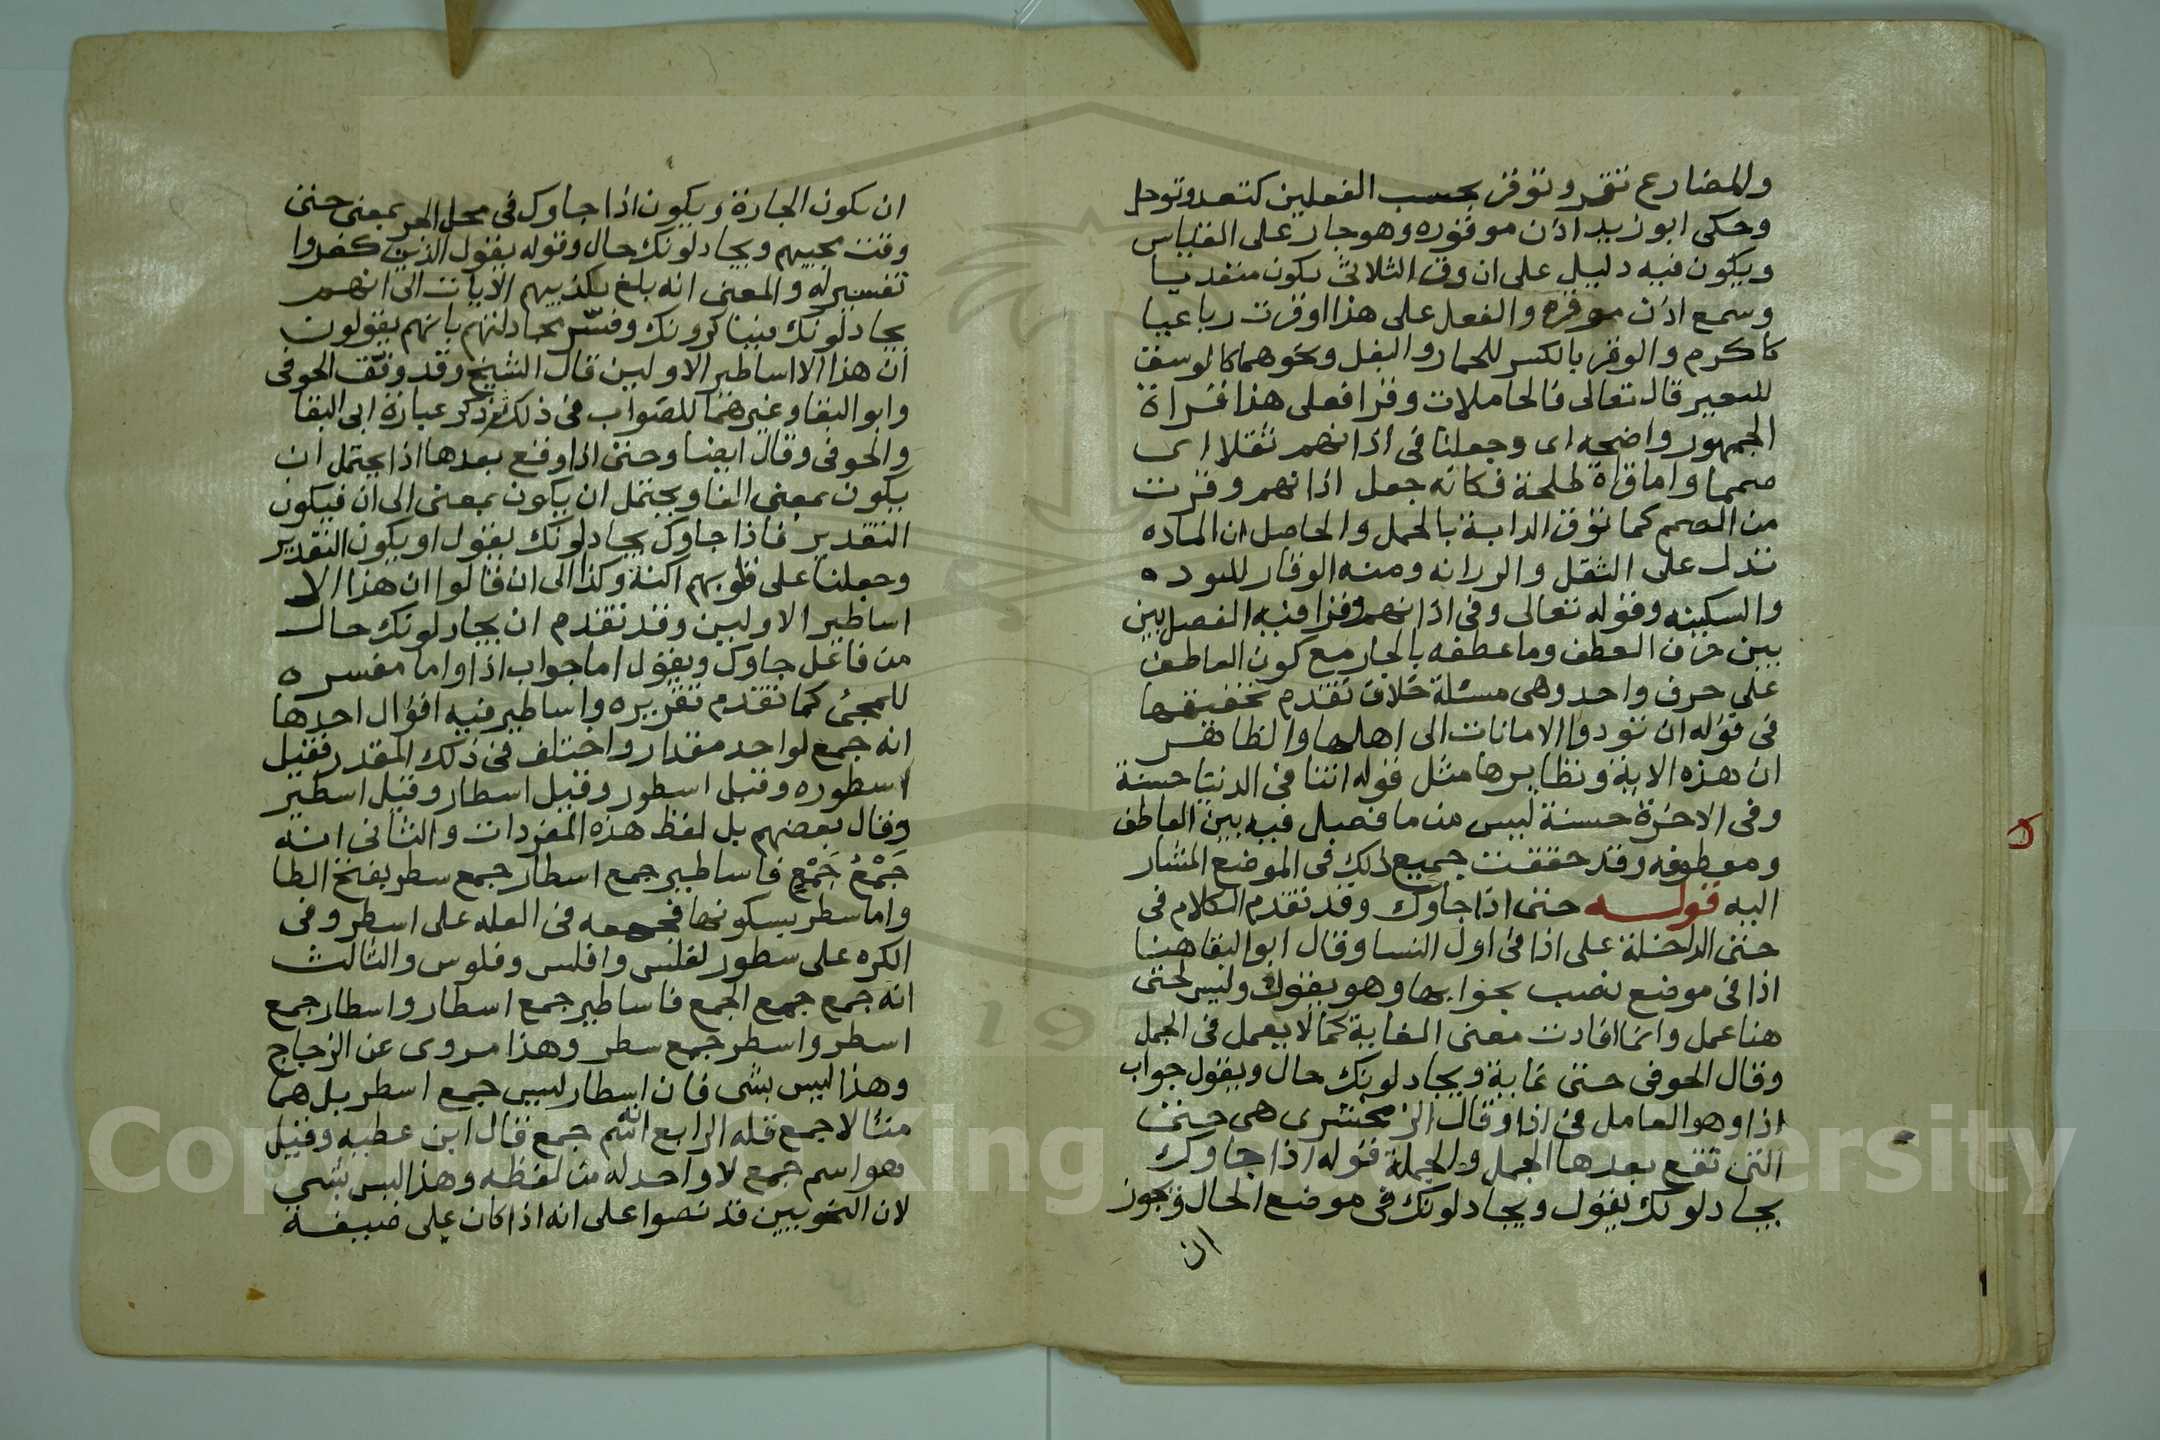 والمضارع تقر وتوقر بحسب الفعلين كتعد وتوجل
وحكى ابو زيد اذن موقوره وهو جار على القياس
ويكون فيه دليل على ان وقر الثلاثي يكون متعديا
وسمع اذن موقره والفعل على هذا اوقرت رباعيا
كاكرم والوقر بالكسر للحمار والبغل ونحوهما كالوسق
للبعير قال تعالى فالحاملات وقرا فعلى هذا قراة
الجمهور واضحه اى وجعلنا فى اذانهم ثقلا اى
صمما واما قراة طلحة فكانه جعل اذانهم وقرت
من الصمم كما توقر الدابة بالحمل والحاصل ان الماده
تدل على الثقل والرزانه ومنه الوقار للتوده
والسكينه وقوله تعالى وفى اذانهم وقرا فيه الفصل بين
بين حرف العطف وما عطفه بالجار مع كون العاطف
على حرف واحد وهى مسئلة خلاف تقدم تحقيقها
فى قوله ان تودوا الامانات الى اهلها والظاهر
ان هذه الاية ونظايرها مثل قوله اتنا فى الدنيا حسنة
وفى الاخرة حسنة ليس من ما فصل فيه بين العاطف
ومعطوفه وقد حققت جميع ذلك فى الموضع المشار
اليه قوله حتى اذا جاوك وقد تقدم الكلام فى
حتى الداخلة على اذا فى اول النسا وقال ابو البقا هنا
اذا فى موضع نصب بجوابها وهو يقول وليس لحتى
هنا عمل وانما افادت معنى الغاية كما لا يعمل فى الجمل
وقال الحوفى حتى غاية ويجادلونك حال ويقول جواب
اذا وهو العامل فى اذا وقال الزمخشرى هى حتى
التى تقع بعدها الجمل والجملة قوله اذا جاوك
يجادلونك يقول ويجادلونك فى موضع الحال ويجوز
ان
ان تكون الجارة ويكون اذا جاوك فى محل الجر بمعنى حتى
وقت مجيهم ويجادلونك حال وقوله يقول الذين كفروا
تفسير له والمعنى انه بلغ تكذيبهم الايات الى انهم
يجادلونك ويناكرونك وفسر مجادلتهم بانهم يقولون
ان هذا الا اساطير الاولين قال الشيخ وقد وفق الحوفى
وابو البقا وغيرهما للصواب فى ذلك ثم ذكر عبارة ابى البقا
والحوفى وقال ايضا وحتى اذا وقع بعدها اذا يحتمل ان
يكون بمعنى الفا ويحتمل ان يكون بمعنى الى ان فيكون
التقدير فاذا جاوك يجادلونك يقول او يكون التقدير
وجعلنا على قلوبهم اكنة وكذا الى ان قالوا ان هذا الا
اساطير الاولين وقد تقدم ان يجادلونك حال
من فاعل جاوك ويقول اما جواب اذا واما مفسره
للمجئ كما تقدم تقريره واساطير فيه اقوال احدها
انه جمع لواحد مقدار واختلف فى ذلك المقدر فقيل
اسطوره وقيل اسطور وقيل اسطار وقيل اسطير
وقال بعضهم بل لفظ هذه المفردات والثانى انه
جَمْعُ جَمْعٍ فاساطير جمع اسطار جمع سطر بفتح الطا
واما سطر بسكونها فجمعه فى القله على اسطر وفى
الكره على سطور لفلس وافلس وفلوس والثالث
انه جمع جمع الجمع فاساطير جمع اسطار واسطار جمع
اسطر واسطر جمع سطر وهذا مروى عن الزجاج
وهذا ليس بشى فان اسطار ليس جمع اسطر بل هما
مثالا جمع قله الرابع اسم جمع قال ابن عطيه وقيل
هو اسم جمع لا واحد له من لفظه وهذا ليس بشى
لان النحويين قد نصوا على انه اذا كان على صيغة
Copyright © King Saud University